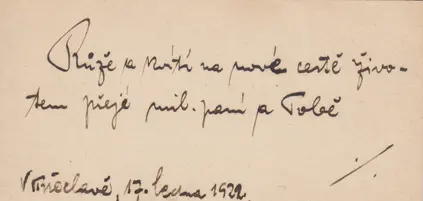 Růže a kvítí na nové cestě živo-
tem přeje mil. paní a Tobě
V Břeclavě, 17. ledna 1922.